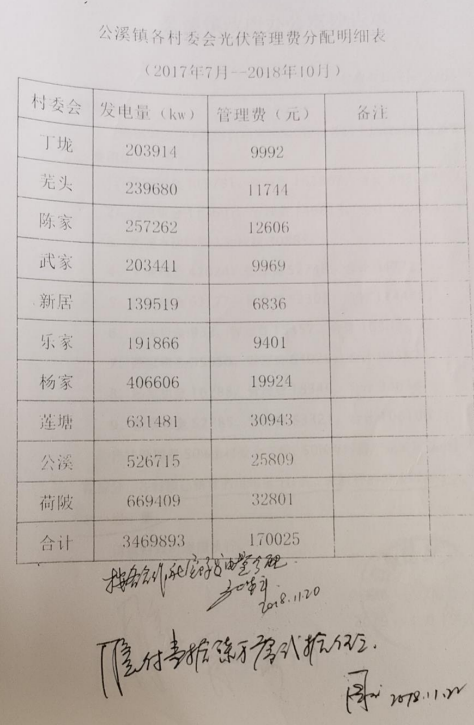 公溪镇各村委会光伏管理费分配明细表
（2017年7月—2018年10月）
村委会 发电量（kw） 管理费（元） 备注
丁垅 203914 9992
芜头 239680 11744
陈家 257262 12606
武家 203441 9969
新居 139519 6836
乐家 191866 9401
杨家 406606 19924
莲塘 631481 30943
公溪 526715 25809
荷陂 669409 32801
合计 3469893 170025
2018.11.20
付壹拾柒万零贰拾伍元
2018.11.22